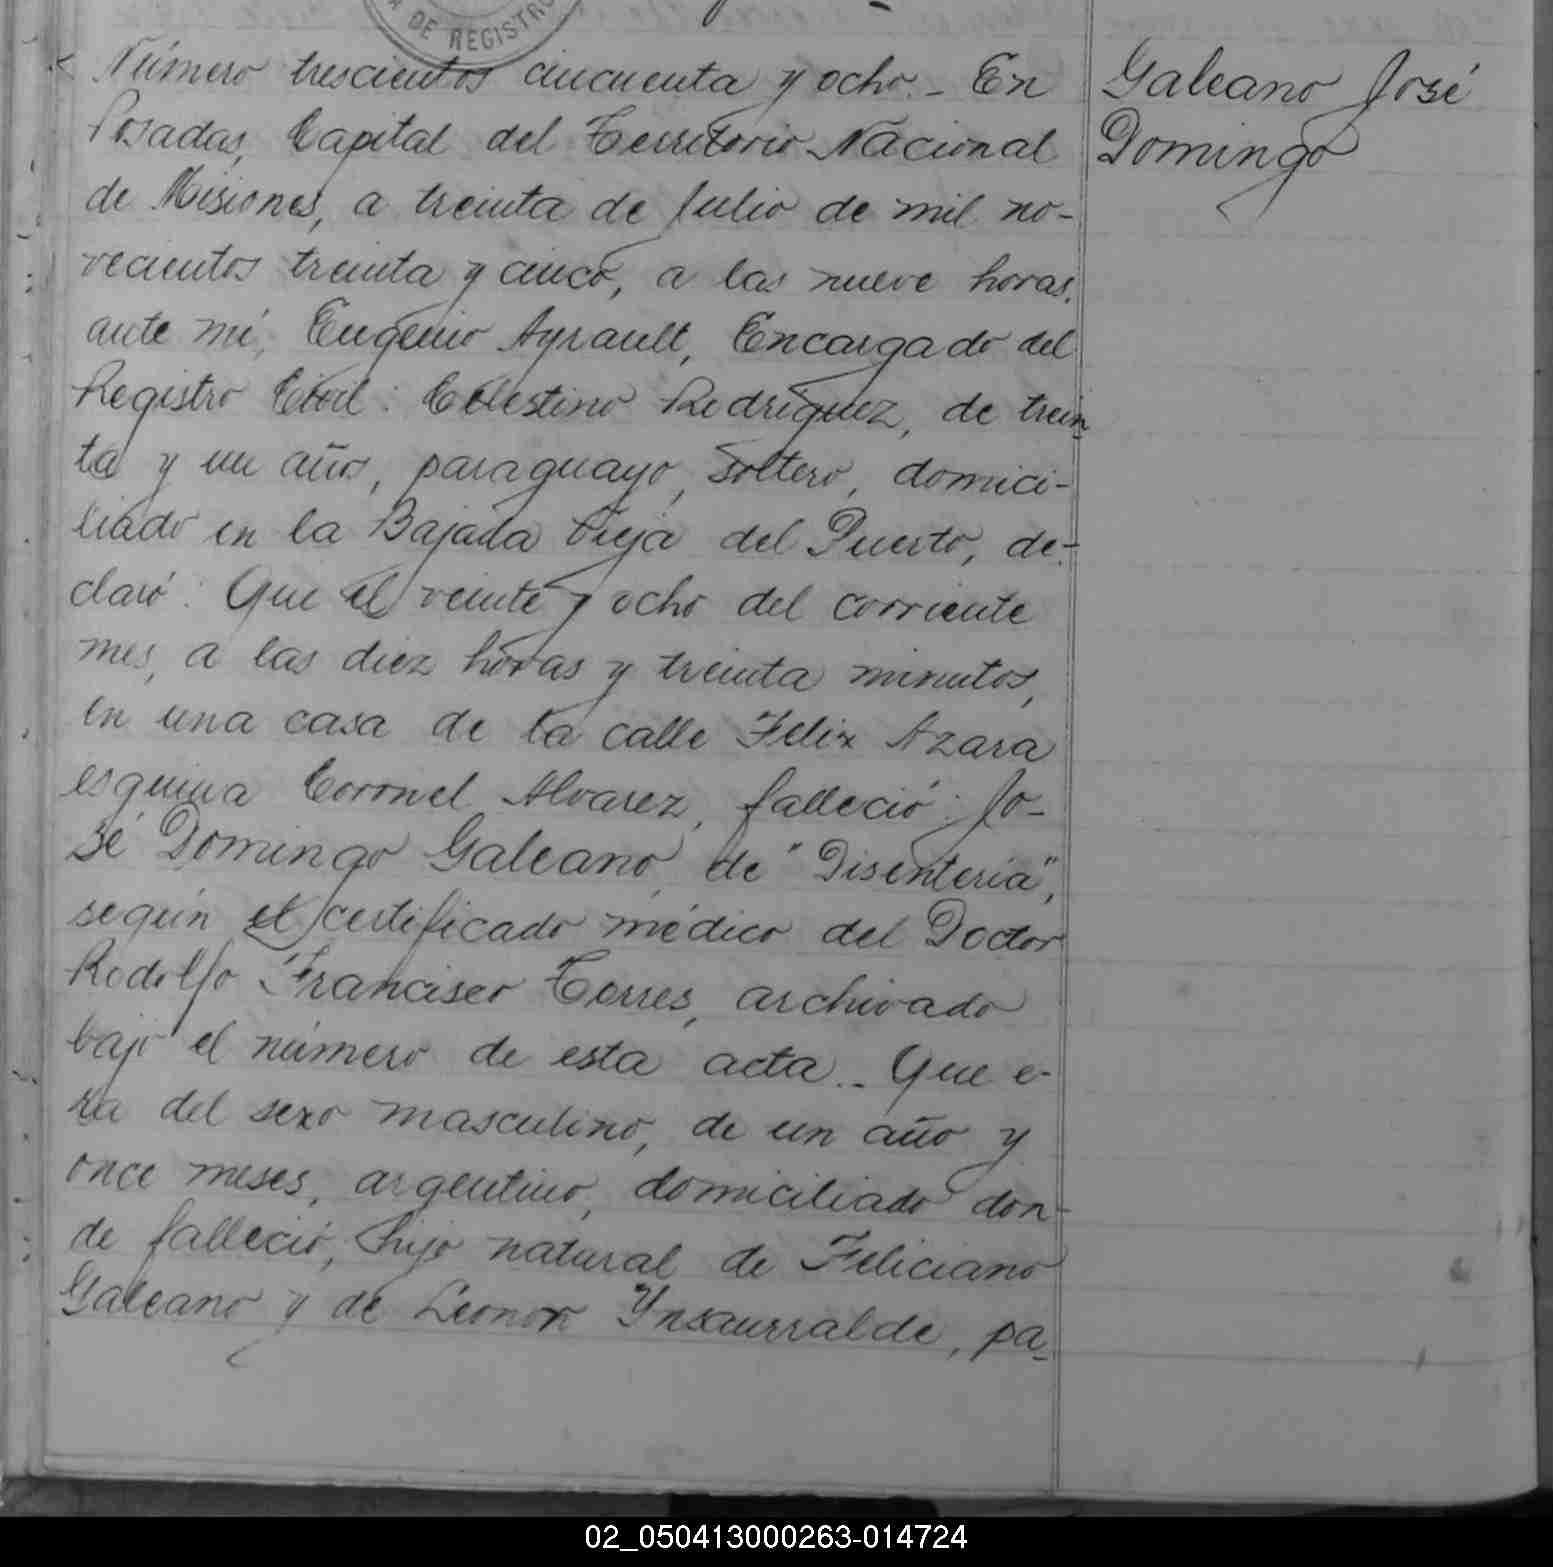 DE REGISTRO
Número trescientos cincuenta y ocho.- En
Posadas, Capital del Territorio Nacional
de Misiones, a treinta de Julio de mil no-
vecientos treinta y cinco, a las nueve horas,
ante mí, Eugenio Ayrault, Encargado del
Registro Civil: Celestino Rodríguez, de trein
ta y un años, paraguayo, soltero, domici-
liado en la Bajada Vieja del Puerto, de-
claró: Que el veinte y ocho del corriente
mes, a las diez horas y treinta minutos,
en una casa de la calle Felix Azara
esquina Coronel Alvarez, falleció: Jo-
sé Domingo Galeano, de "Disentería",
según el certificado médico del Doctor
Rodolfo Francisco Torres, archivado
bajo el número de esta acta.- Que e-
ra del sexo masculino, de un año y
once meses, argentino, domiciliado don-
de falleció, hijo natural de Feliciano
Galeano y de Leonor Ynsaurralde, pa-
Galeano José
Domingo
02_050413000263-014724